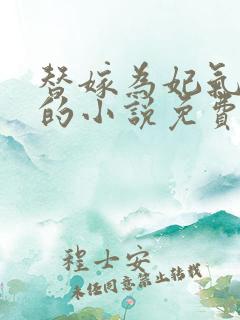 替嫁为妃氣
的小说免費
程士安
未经同意禁止转载